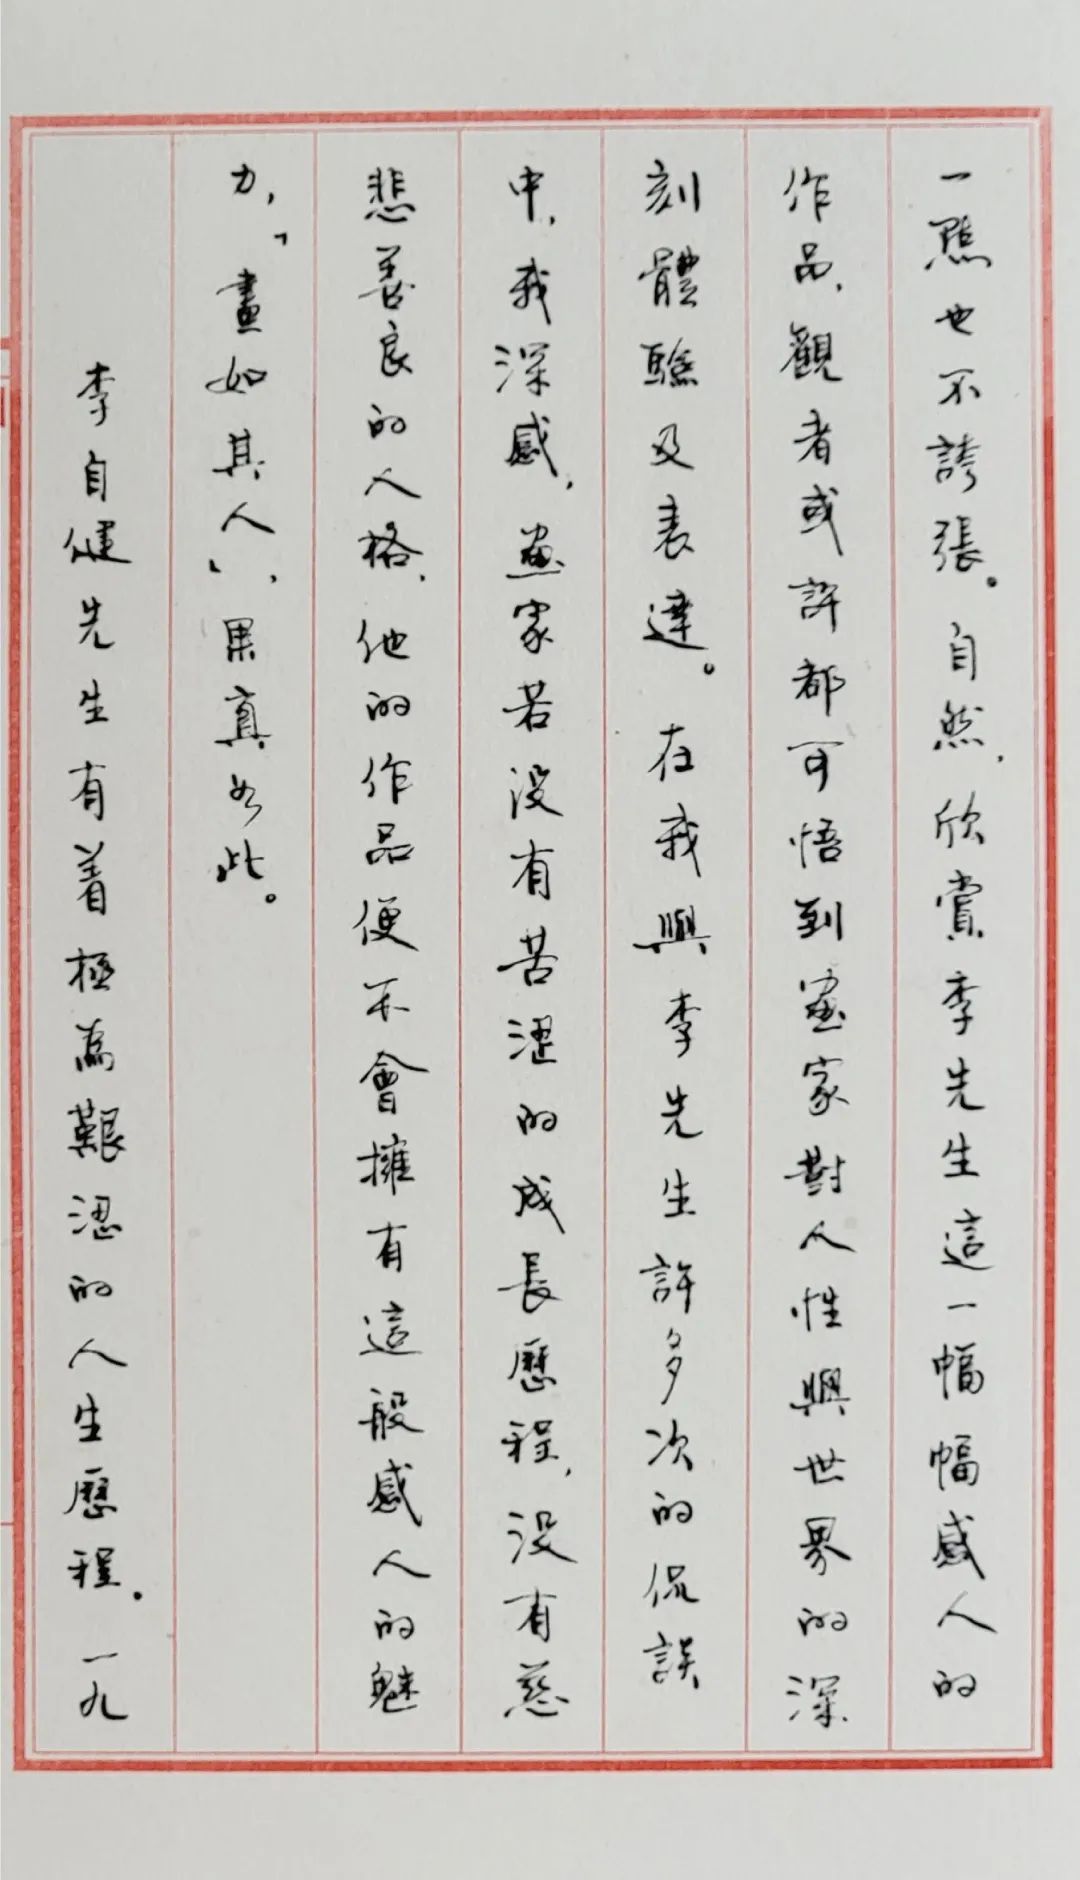 一點也不誇張。自然，欣賞李先生這一幅幅感人的
作品，觀者或許都可悟到畫家對人性與世界的深
刻體驗及表達。在我與李先生許多次的侃談
中，我深感，畫家若没有苦澀的成長歷程，没有慈
悲善良的人格，他的作品便不會擁有這般感人的魅
力，「畫如其人」，果真如此。
李自健先生有着極為艱澀的人生歷程。一九